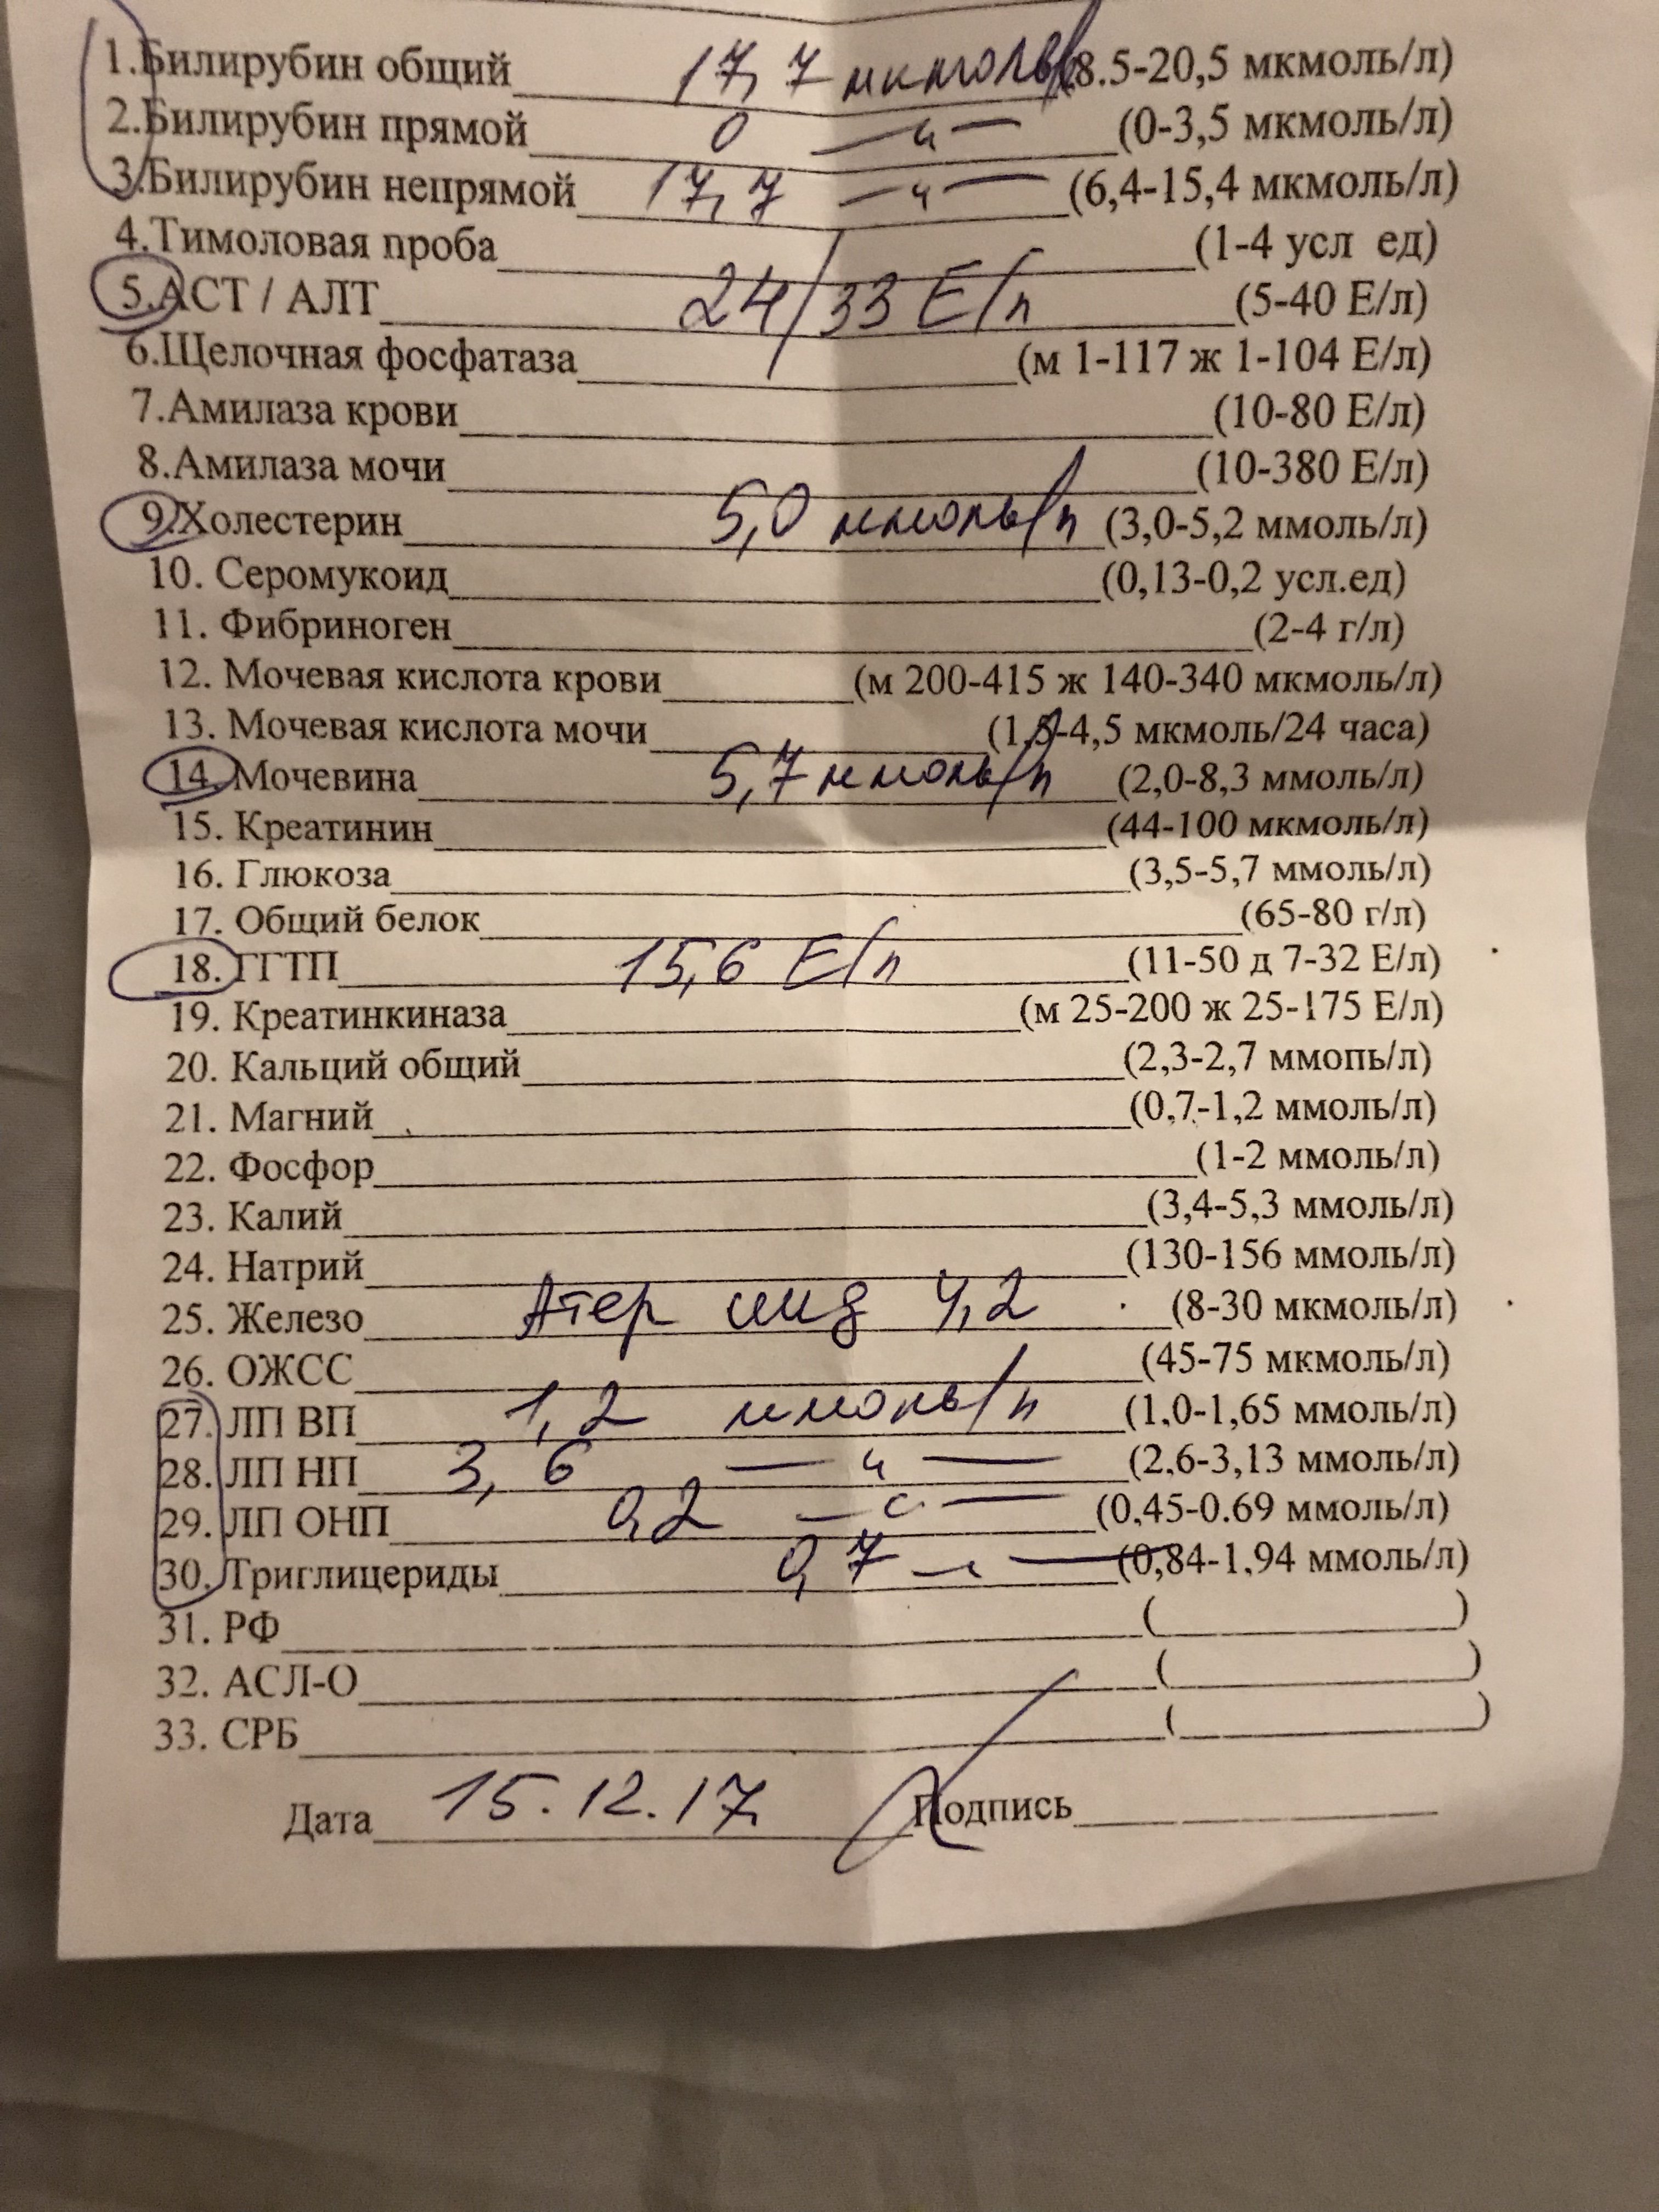 1.Билирубин общий 17,7 мкмоль/л (8.5-20,5 мкмоль/л)
2.Билирубин прямой 0 —〃— (0-3,5 мкмоль/л)
3.Билирубин непрямой 17,7 —〃— (6,4-15,4 мкмоль/л)
4.Тимоловая проба (1-4 усл ед)
5.АСТ / АЛТ 24/33 Е/л (5-40 Е/л)
6.Щелочная фосфатаза (м 1-117 ж 1-104 Е/л)
7.Амилаза крови (10-80 Е/л)
8.Амилаза мочи (10-380 Е/л)
9.Холестерин 5,0 ммоль/л (3,0-5,2 ммоль/л)
10. Серомукоид (0,13-0,2 усл.ед)
11. Фибриноген (2-4 г/л)
12. Мочевая кислота крови (м 200-415 ж 140-340 мкмоль/л)
13. Мочевая кислота мочи (1,5-4,5 мкмоль/24 часа)
14. Мочевина 5,7 ммоль/л (2,0-8,3 ммоль/л)
15. Креатинин (44-100 мкмоль/л)
16. Глюкоза (3,5-5,7 ммоль/л)
17. Общий белок (65-80 г/л)
18. ГГТП 15,6 Е/л (11-50 д 7-32 Е/л)
19. Креатинкиназа (м 25-200 ж 25-175 Е/л)
20. Кальций общий (2,3-2,7 ммопь/л)
21. Магний (0,7-1,2 ммоль/л)
22. Фосфор (1-2 ммоль/л)
23. Калий (3,4-5,3 ммоль/л)
24. Натрий (130-156 ммоль/л)
25. Железо Атер инд 4,2 (8-30 мкмоль/л)
26. ОЖСС (45-75 мкмоль/л)
27. ЛП ВП 1,2 ммоль/л (1,0-1,65 ммоль/л)
28. ЛП НП 3,6 —〃— (2,6-3,13 ммоль/л)
29. ЛП ОНП 0,2 —〃— (0,45-0.69 ммоль/л)
30. Триглицериды 0,7 —〃— (0,84-1,94 ммоль/л)
31. РФ ( )
32. АСЛ-О ( )
33. СРБ ( )
Дата 15.12.17 Подпись